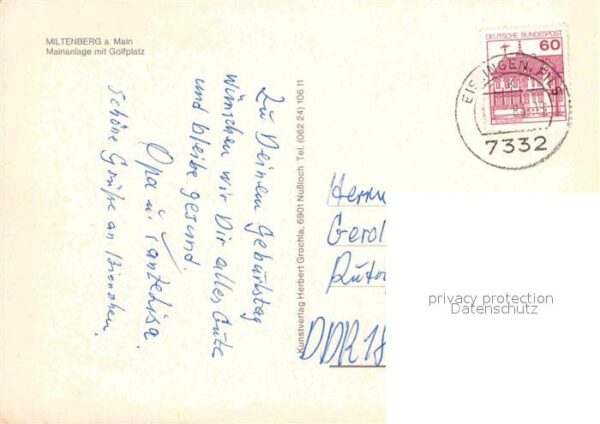 MILTENBERG a. Main
Mainanlage mit Golfplatz
Zu Deinem Geburtstag
wünschen wir Dir alles Gute
und bleibe gesund.
Opa u. Tanzelisa.
Schöne Grüße an Bienchen.
Kunstverlag Herbert Grochla, 6901 Nußloch Tel. (062 24) 106 11
DEUTSCHE BUNDESPOST
60
EISLINGEN, FILS
7332
Herrn
Gerol
DDR 18
privacy protection
Datenschutz